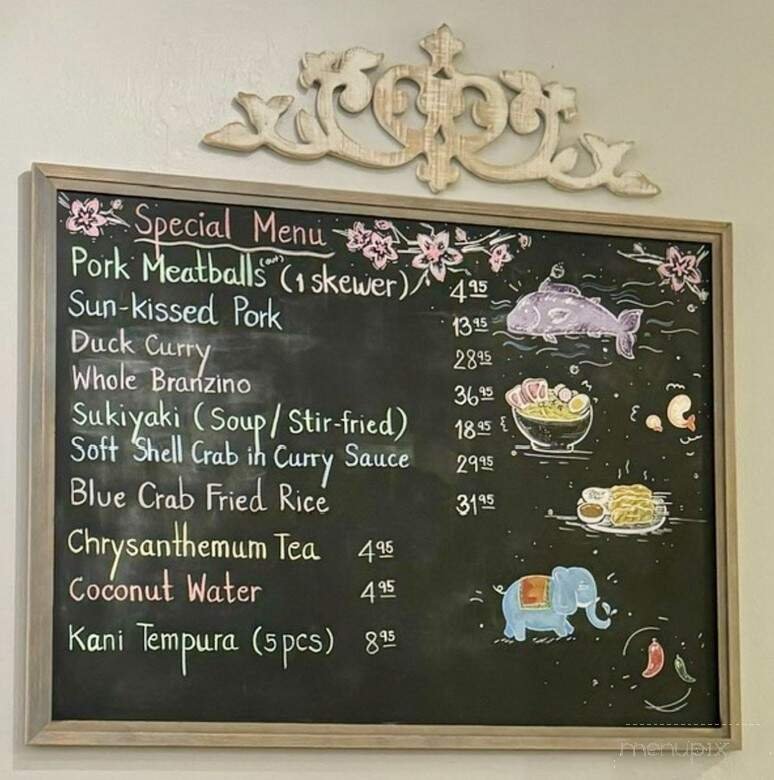 Special Menu
Pork Meatballs (out) (1 skewer) 4.95
Sun-kissed Pork 13.95
Duck Curry 28.95
Whole Branzino 36.95
Sukiyaki (Soup/Stir-fried) 18.95
Soft Shell Crab in Curry Sauce 29.95
Blue Crab Fried Rice 31.95
Chrysanthemum Tea 4.95
Coconut Water 4.95
Kani Tempura (5pcs) 8.95
menupix